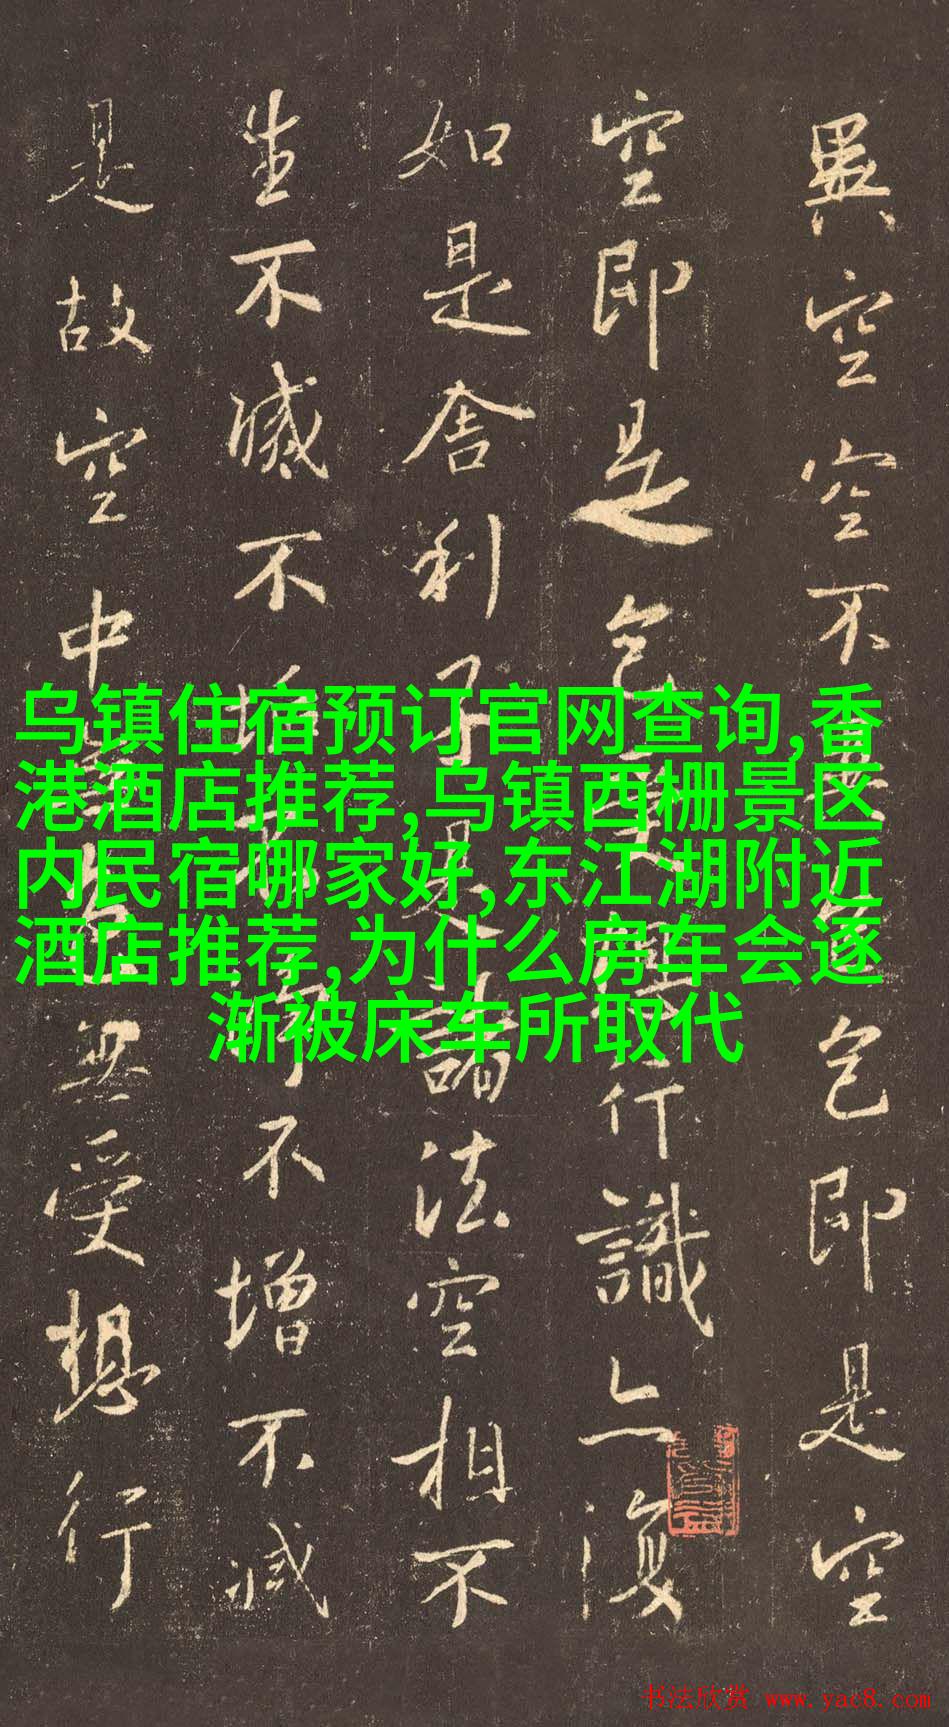 異空空不色即是空
空即是色行識亦復
如是舍利子是諸法空相不
生不滅不不增不減
是故空中無受想行
乌镇住宿预订官网查询,香
港酒店推荐,乌镇西栅景区
内民宿哪家好,东江湖附近
酒店推荐,为什么房车会逐
渐被床车所取代
书法欣赏 www.yac8.com